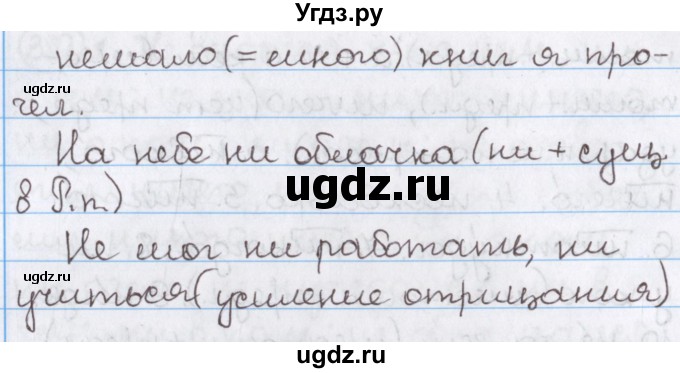 Угдз.ру
немало(= много) книг я про-
чел.
На небе ни облачка (ни + сущ.
в Р.п.)
Не мог ни работать, ни
учиться (усиление отрицания)
ugdz.ru
ugdz.ru
ugdz.ru
ugdz.ru
ugdz.ru
ugdz.ru
ugdz.ru